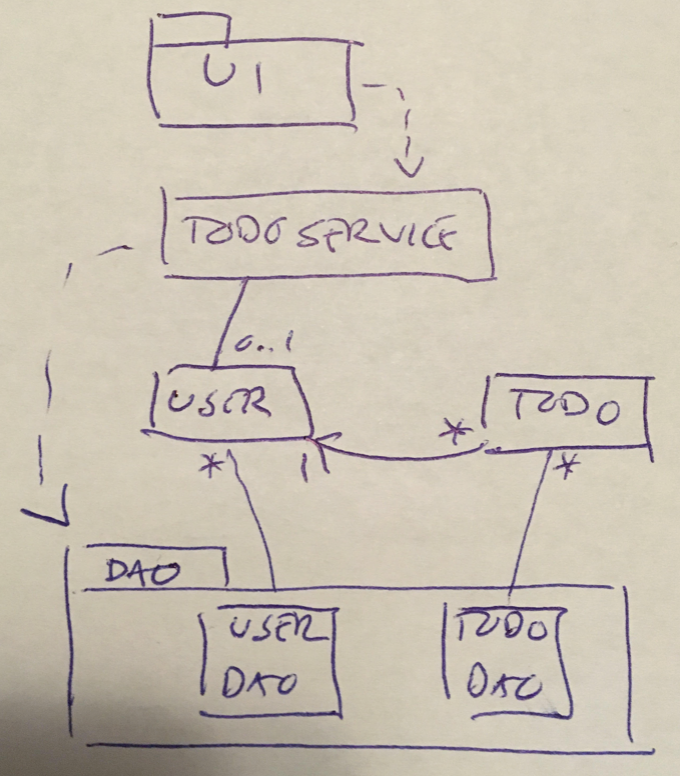 UI
TODO SERVICE
0..1
USER
TODO
*
1
*
*
DAO
USER
DAO
TODO
DAO